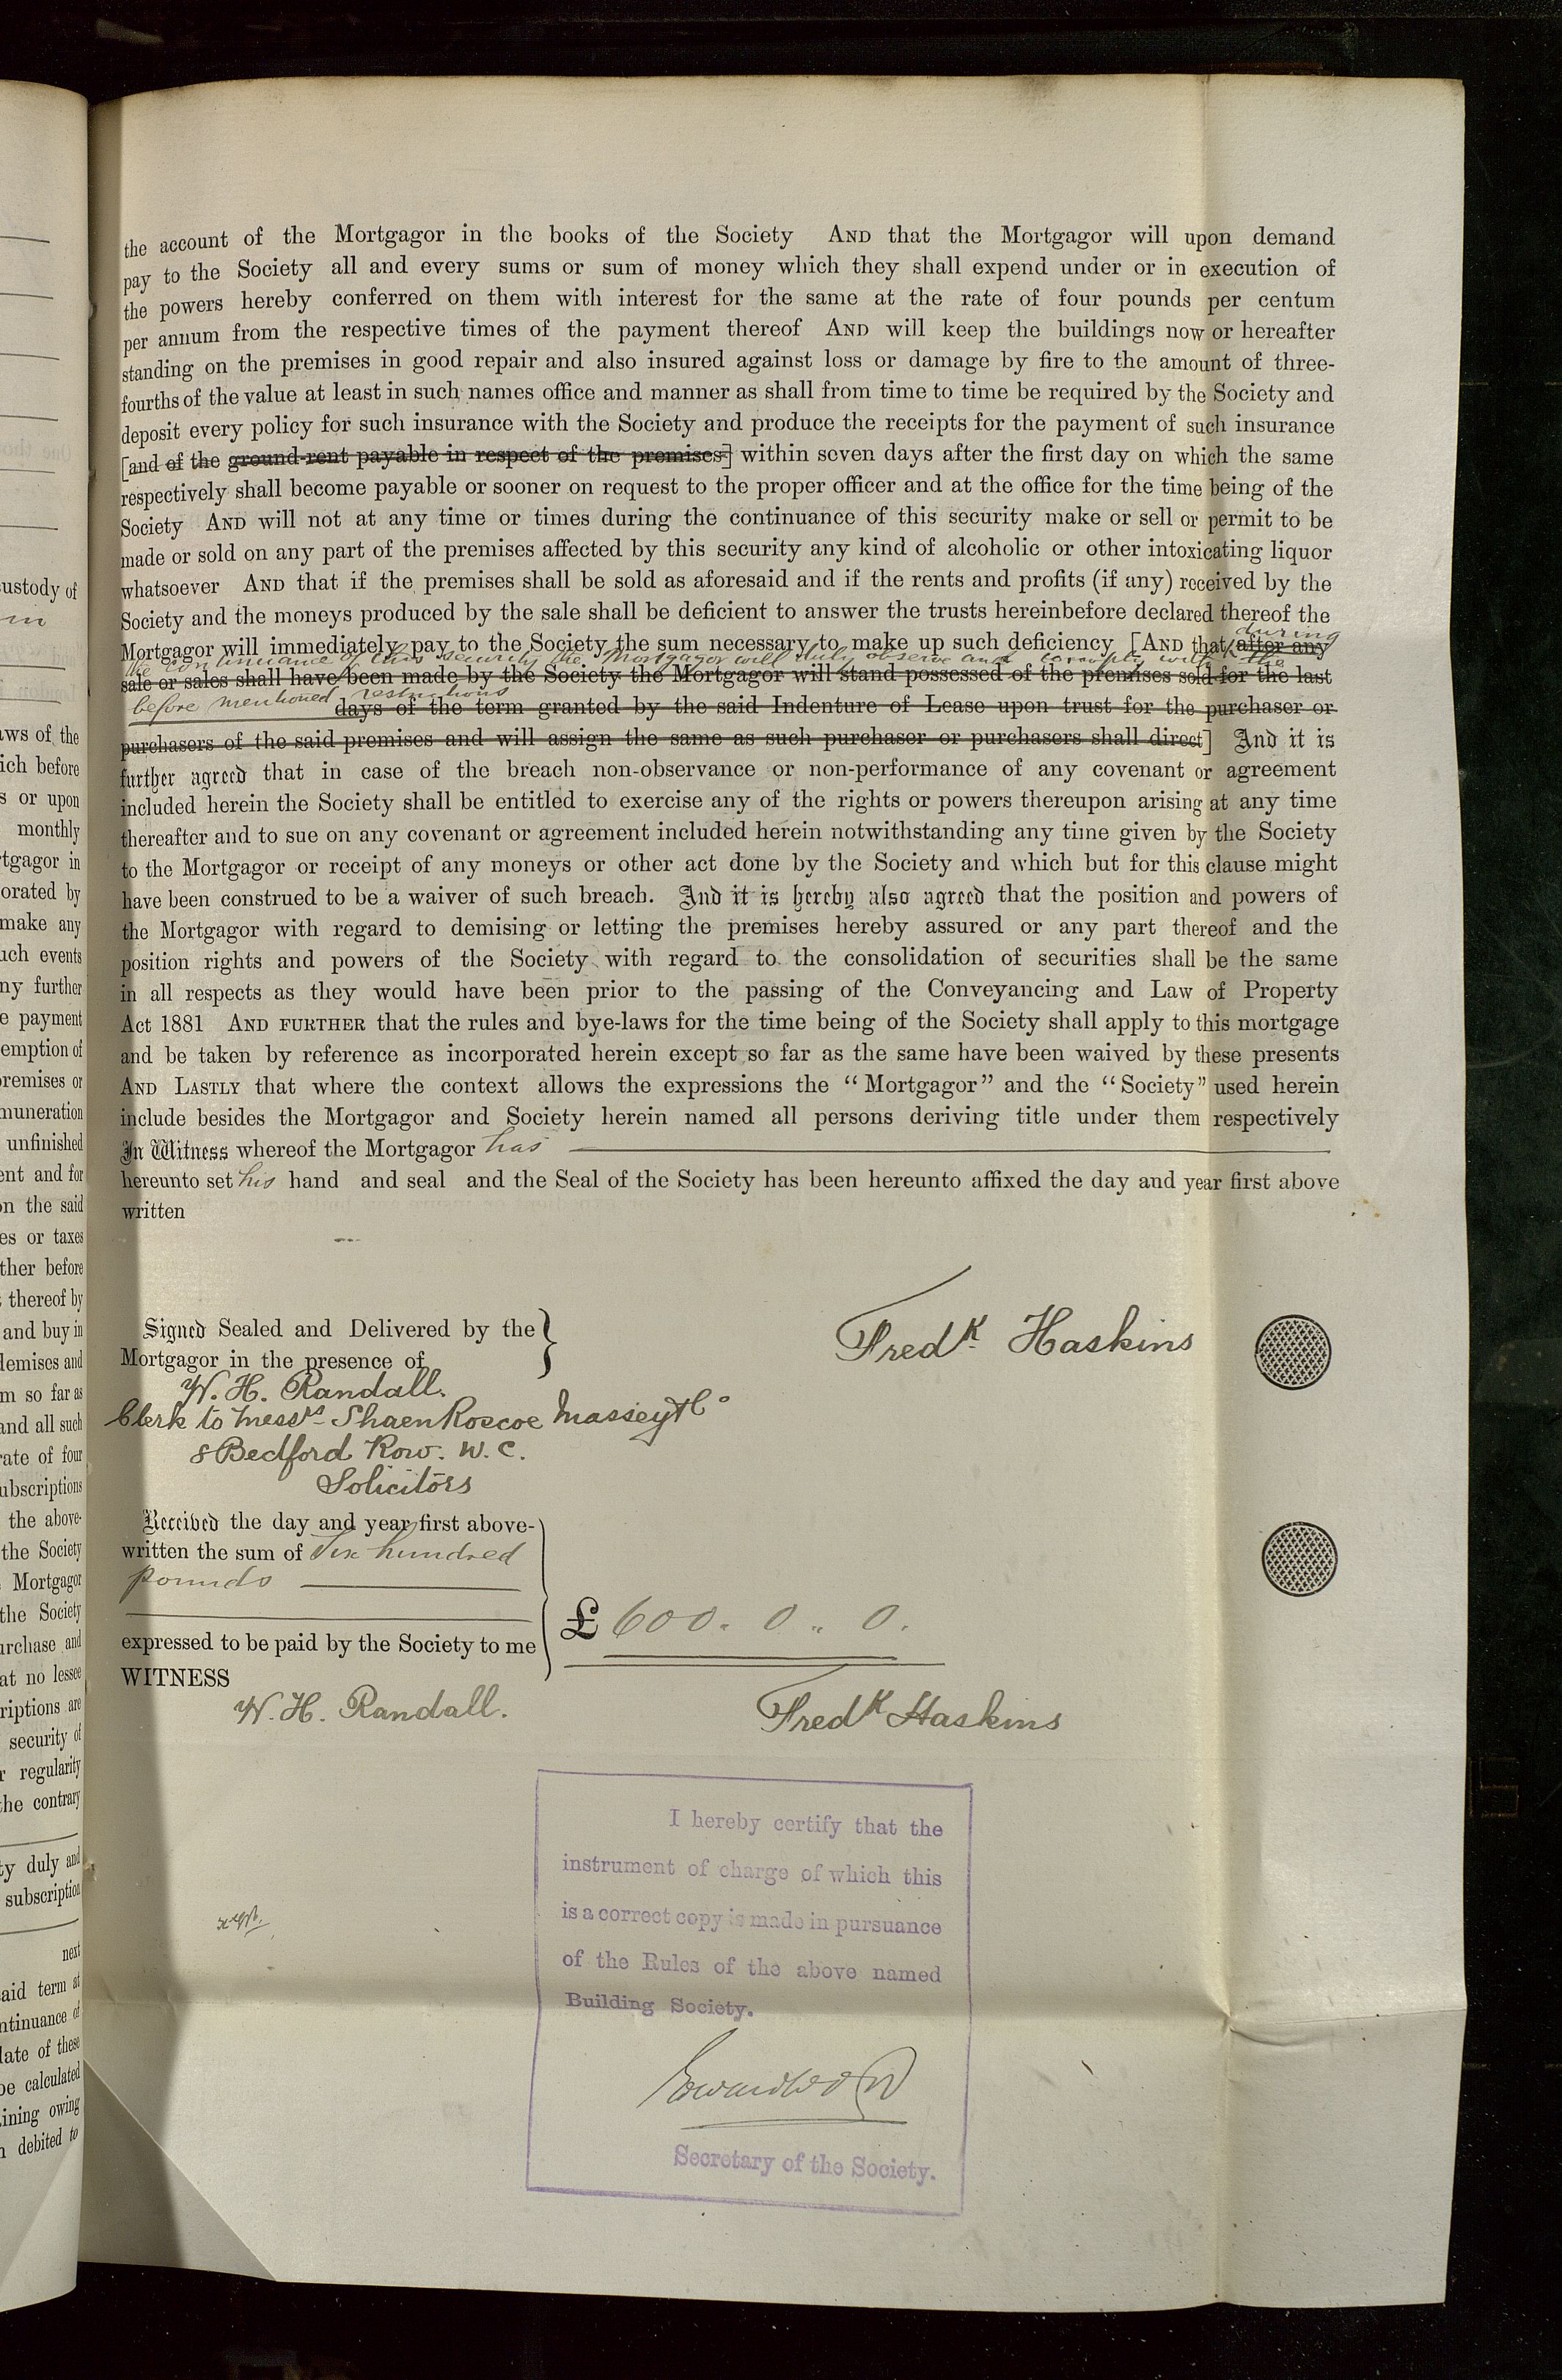 the account of the Mortgagor in the books of the Society AND that the Mortgagor will upon demand
pay to the Society all and every sums or sum of money which they shall expend under or in execution of
the powers hereby conferred on them with interest for the same at the rate of four pounds per centum
per annum from the respective times of the payment thereof AND will keep the buildings now or hereafter
standing on the premises in good repair and also insured against loss or damage by fire to the amount of three-
fourths of the value at least in such names office and manner as shall from time to time be required by the Society and
deposit every policy for such insurance with the Society and produce the receipts for the payment of such insurance
[and of the ground-rent payable in respect of the premises] within seven days after the first day on which the same
respectively shall become payable or sooner on request to the proper officer and at the office for the time being of the
Society AND will not at any time or times during the continuance of this security make or sell or permit to be
made or sold on any part of the premises affected by this security any kind of alcoholic or other intoxicating liquor
whatsoever AND that if the premises shall be sold as aforesaid and if the rents and profits (if any) received by the
Society and the moneys produced by the sale shall be deficient to answer the trusts hereinbefore declared thereof the
during
Mortgagor will immediately pay to the Society the sum necessary to make up such deficiency [AND that after any
the continuance of this security the Mortgagor will duly observe and comply with the
sale or sales shall have been made by the Society the Mortgagor will stand possessed of the premises sold for the last
before mentioned restrictions
days of the term granted by the said Indenture of Lease upon trust for the purchaser or
purchasers of the said premises and will assign the same as such purchaser or purchasers shall direct] And it is
further agreed that in case of the breach non-observance or non-performance of any covenant or agreement
included herein the Society shall be entitled to exercise any of the rights or powers thereupon arising at any time
thereafter and to sue on any covenant or agreement included herein notwithstanding any time given by the Society
to the Mortgagor or receipt of any moneys or other act done by the Society and which but for this clause might
have been construed to be a waiver of such breach. And it is hereby also agreed that the position and powers of
the Mortgagor with regard to demising or letting the premises hereby assured or any part thereof and the
position rights and powers of the Society with regard to the consolidation of securities shall be the same
in all respects as they would have been prior to the passing of the Conveyancing and Law of Property
Act 1881 AND FURTHER that the rules and bye-laws for the time being of the Society shall apply to this mortgage
and be taken by reference as incorporated herein except so far as the same have been waived by these presents
AND LASTLY that where the context allows the expressions the "Mortgagor" and the "Society" used herein
include besides the Mortgagor and Society herein named all persons deriving title under them respectively
In Witness whereof the Mortgagor has
hereunto set his hand and seal and the Seal of the Society has been hereunto affixed the day and year first above
written
Signed Sealed and Delivered by the
Mortgagor in the presence of
Fredk. Haskins
W. H. Randall.
Clerk to Messrs Shaen Roscoe Massey & Co
8 Bedford Row. W. C.
Solicitors
Received the day and year first above-
written the sum of Six hundred
pounds
£ 600 " 0 " 0.
expressed to be paid by the Society to me
WITNESS
W. H. Randall.
Fredk Haskins
I hereby certify that the
instrument of charge of which this
is a correct copy is made in pursuance
of the Rules of the above named
Building Society.
Edward Wood
Secretary of the Society.
custody of
in
laws of the
ich before
s or upon
monthly
rtgagor in
orated by
make any
uch events
ny further
e payment
emption of
premises or
muneration
unfinished
ent and for
on the said
es or taxes
ther before
thereof by
and buy in
demises and
m so far as
and all such
rate of four
ubscriptions
the above-
the Society
Mortgagor
the Society
urchase and
at no lessee
riptions are
security of
r regularity
the contrary
ty duly and
subscription
next
said term at
ntinuance of
date of these
be calculated
ining owing
n debited to